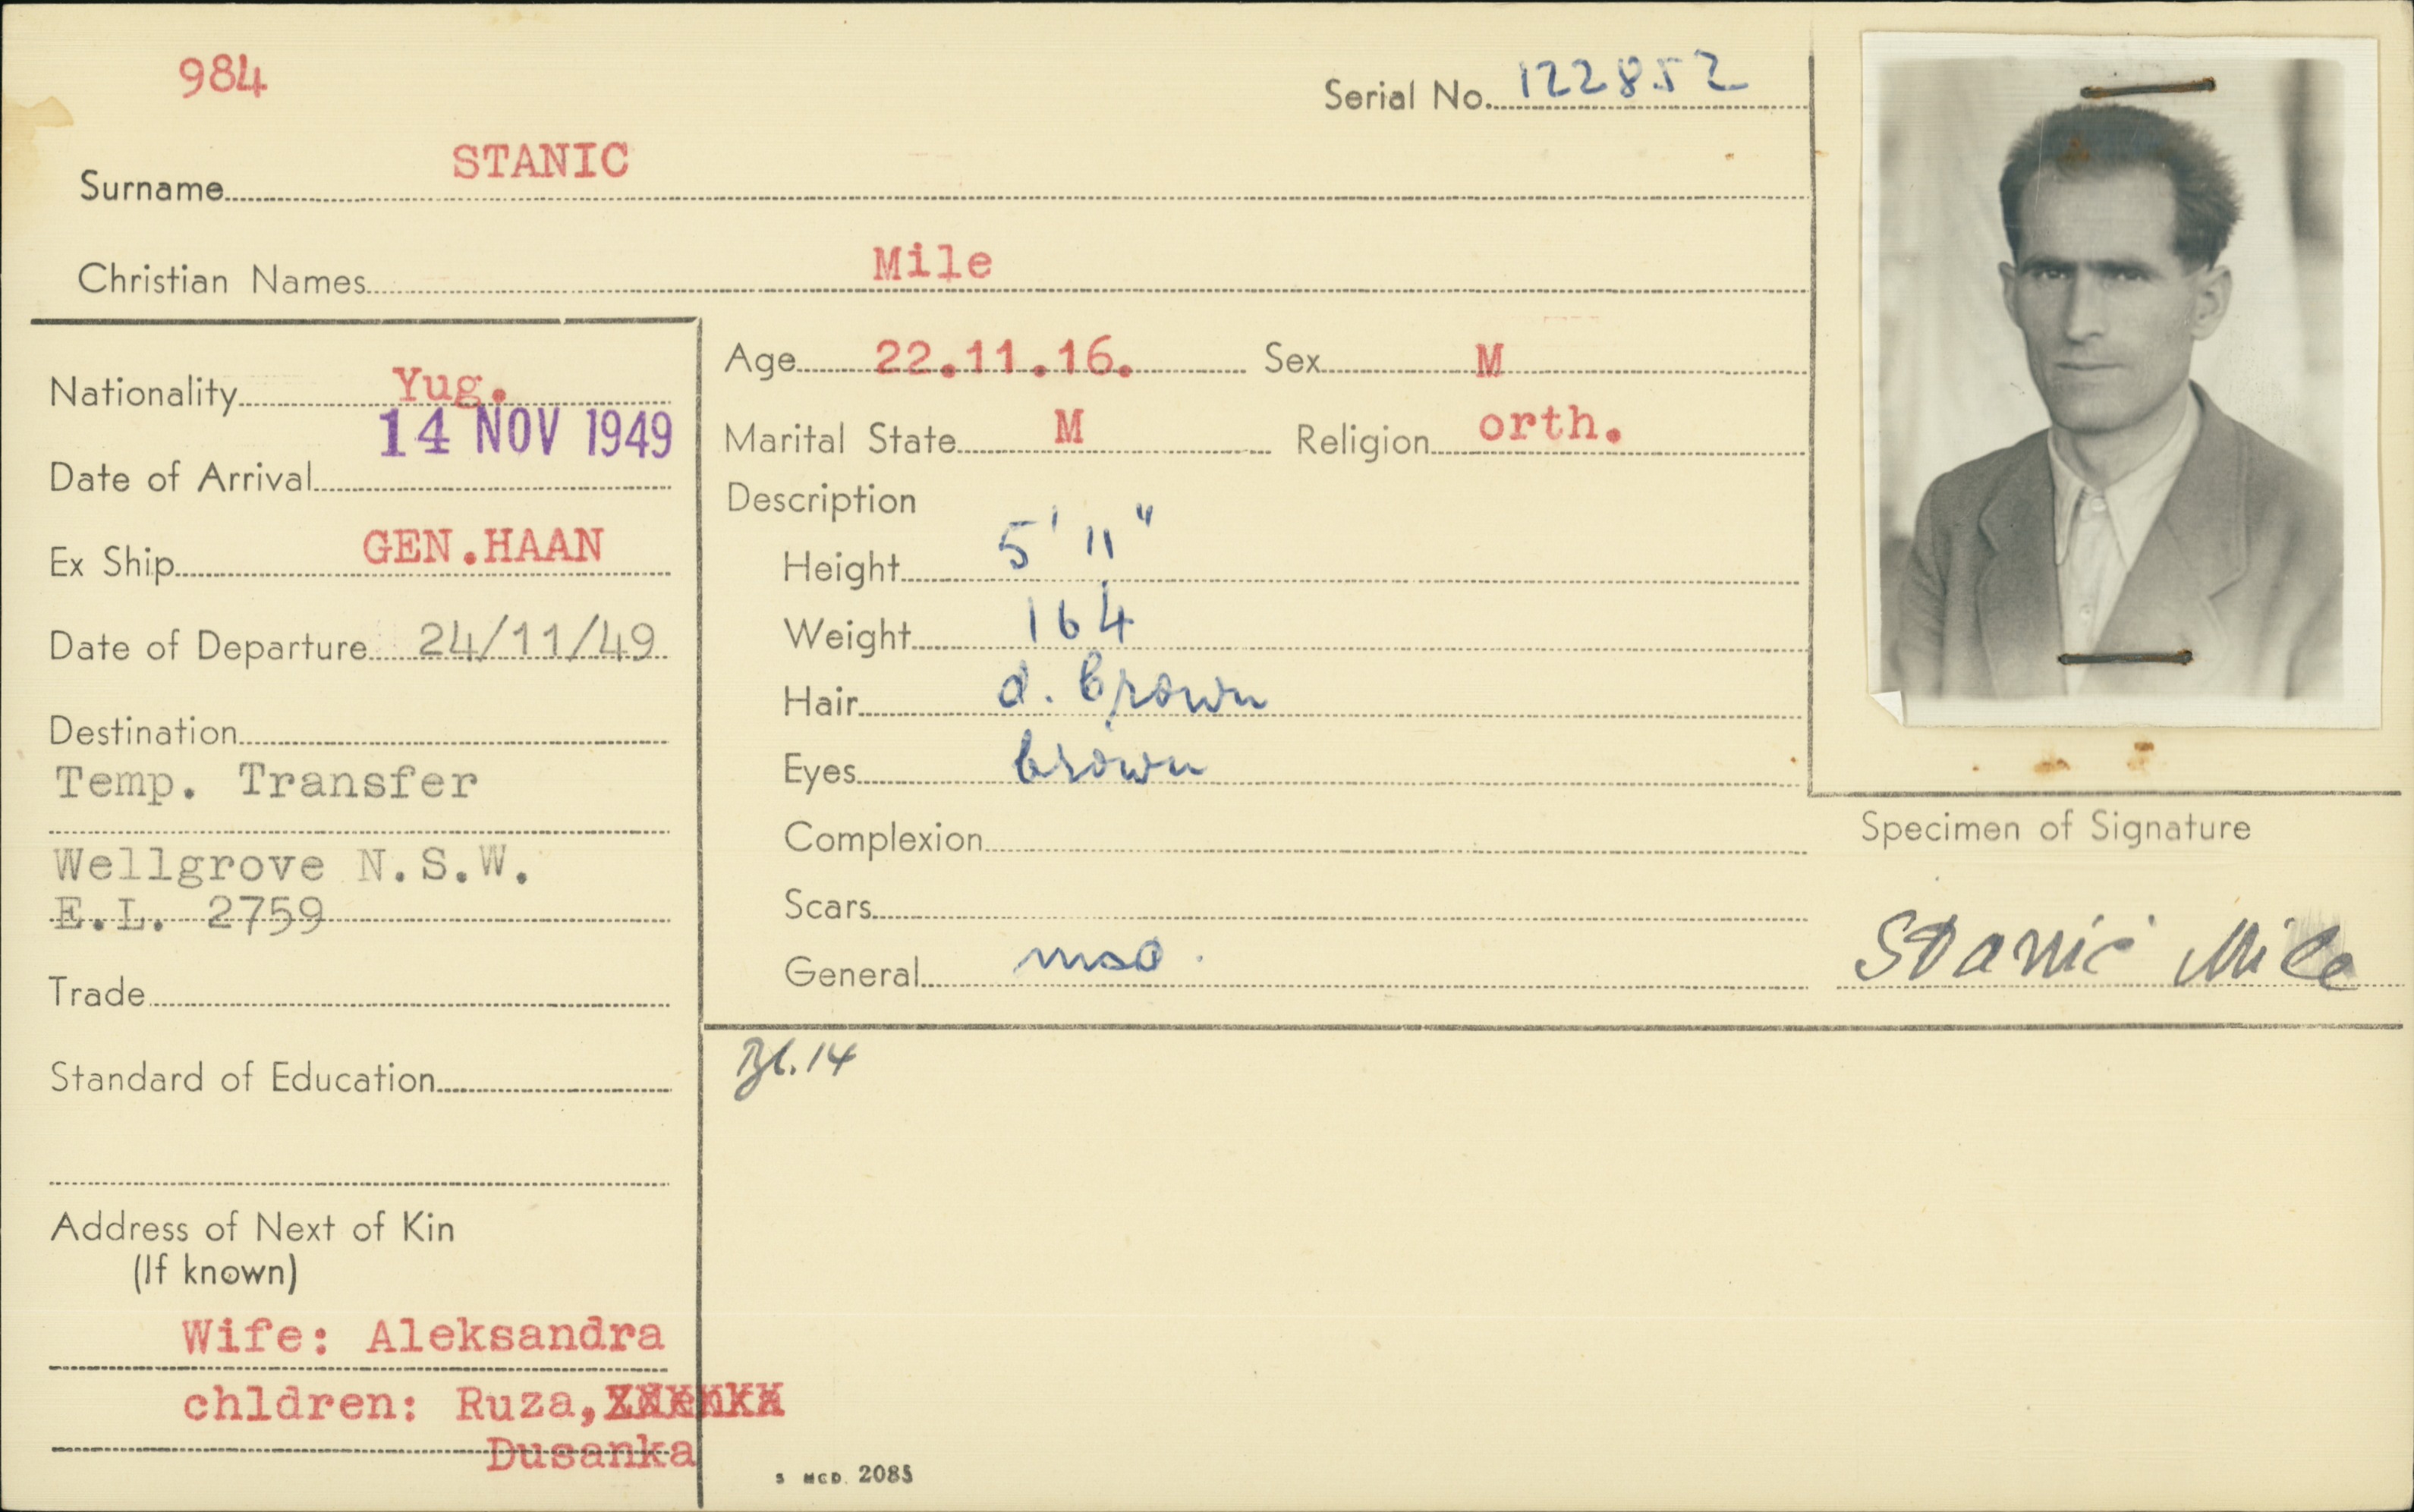 984
Serial No. 122852
Surname STANIC
Christian Names Mile
Nationality Yug.
Date of Arrival 14 NOV 1949
Ex Ship GEN.HAAN
Date of Departure 24/11/49
Destination
Temp. Transfer
Wellgrove N.S.W.
E.L. 2759
Trade
Standard of Education
Address of Next of Kin
(If known)
Wife: Aleksandra
chldren: Ruza,
Dusanka
Age 22.11.16. Sex M
Marital State M Religion orth.
Description
Height 5' 11"
Weight 164
Hair d. brown
Eyes brown
Complexion
Scars
General
Bl. 14
Specimen of Signature
Stanic Mile
2085